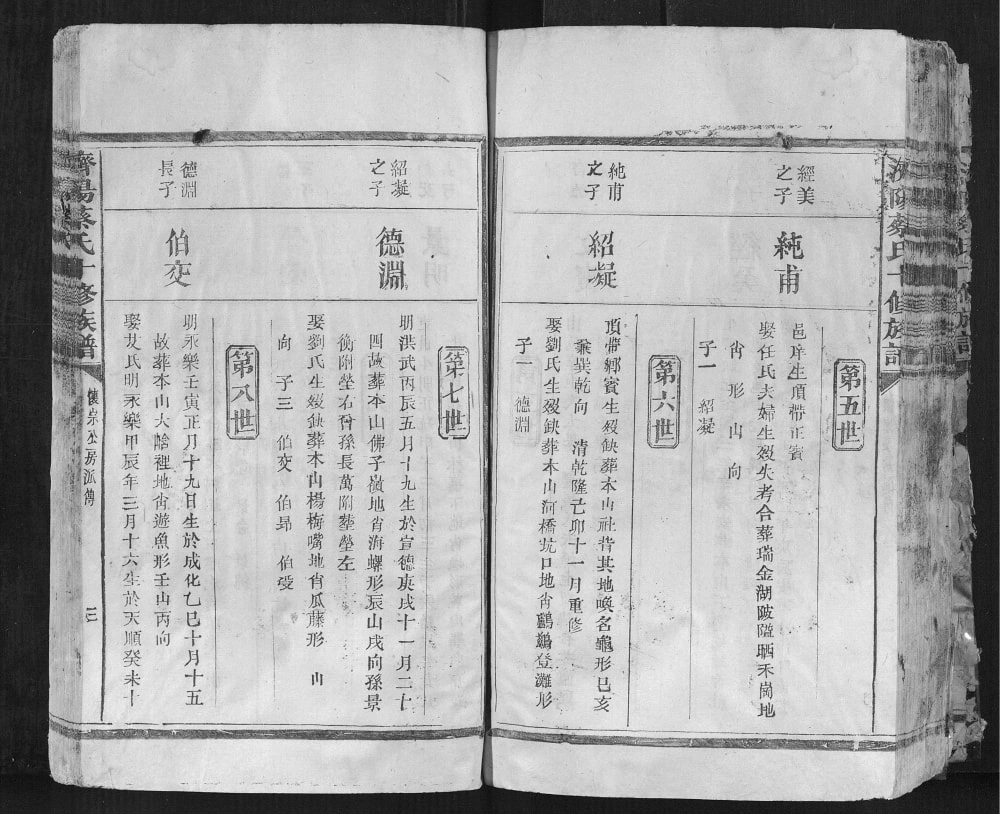 第五世
經美
之子
純甫
邑庠生頂帶正賓
娶任氏夫婦生歿失考合葬瑞金湖陂隘晒禾崗地
肖形山向
子一 紹凝
第六世
純甫
之子
紹凝
頂帶鄉賓生歿缺葬本山社背其地喚名龜形巳亥
兼巽乾向 清乾隆己卯十一月重修
娶劉氏生歿缺葬本山河橋坑口地肖鸂鶒登灘形
子一 德淵
第七世
紹凝
之子
德淵
明洪武丙辰五月十九生於宣德庚戌十一月二十
四故葬本山佛子嶺地肖海螺形辰山戌向孫景
衡附塋右曾孫長萬附葬塋左
娶劉氏生歿缺葬本山楊梅嘴地肖瓜藤形 山
向 子三 伯交 伯昂 伯受
第八世
德淵
長子
伯交
明永樂壬寅正月十九日生於成化乙巳十月十五
故葬本山大𱽐裡地肖遊魚形壬山丙向
娶艾氏明永樂甲辰年三月十六生於天順癸未十
濟陽蔡氏十修族譜
懷宗公房派傳
三